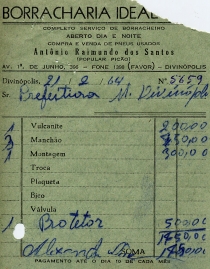 BORRACHARIA IDEAL
COMPLETO SERVIÇO DE BORRACHEIRO
ABERTO DIA E NOITE
COMPRA E VENDA DE PNEUS USADOS
Antônio Raimundo dos Santos
(POPULAR PICÃO)
AV. 1º. DE JUNHO, - FONE (FAVOR) - DIVINÓPOLIS
Divinópolis, 21/2/64 Nº 5659
Sr. Prefeitura M. Divinópolis
1 Vulcanite 200,00
3 Manchão 450,00
1 Montagem 300,00
Troca
Plaqueta
Bico
Válvula
1 Protetor 500,00
SOMA 1450,00
PAGAMENTO ATÉ O DIA 10 DE CADA MÊS